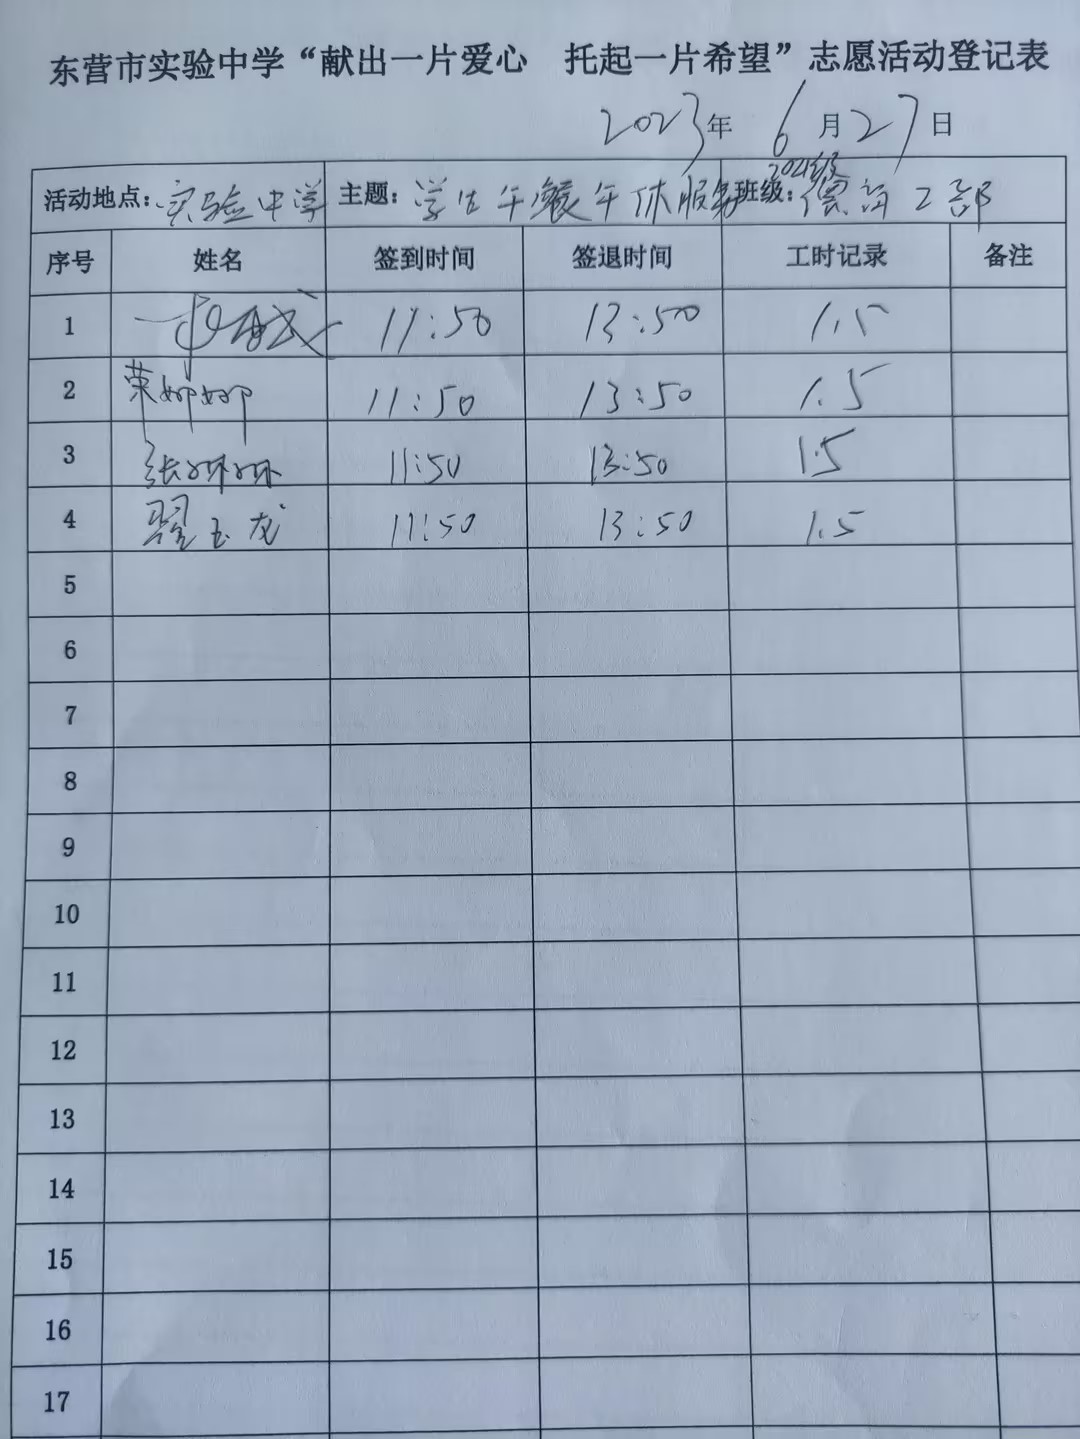 东营市实验中学“献出一片爱心 托起一片希望”志愿活动登记表
2023年 6月27日
活动地点:实验中学 主题:学生午餐午休服务 班级:2021级德育工部
序号 姓名 签到时间 签退时间 工时记录 备注
1 11:50 13:50 1.5
2 荣娜娜 11:50 13:50 1.5
3 张琳琳 11:50 13:50 1.5
4 翟玉龙 11:50 13:50 1.5
5
6
7
8
9
10
11
12
13
14
15
16
17